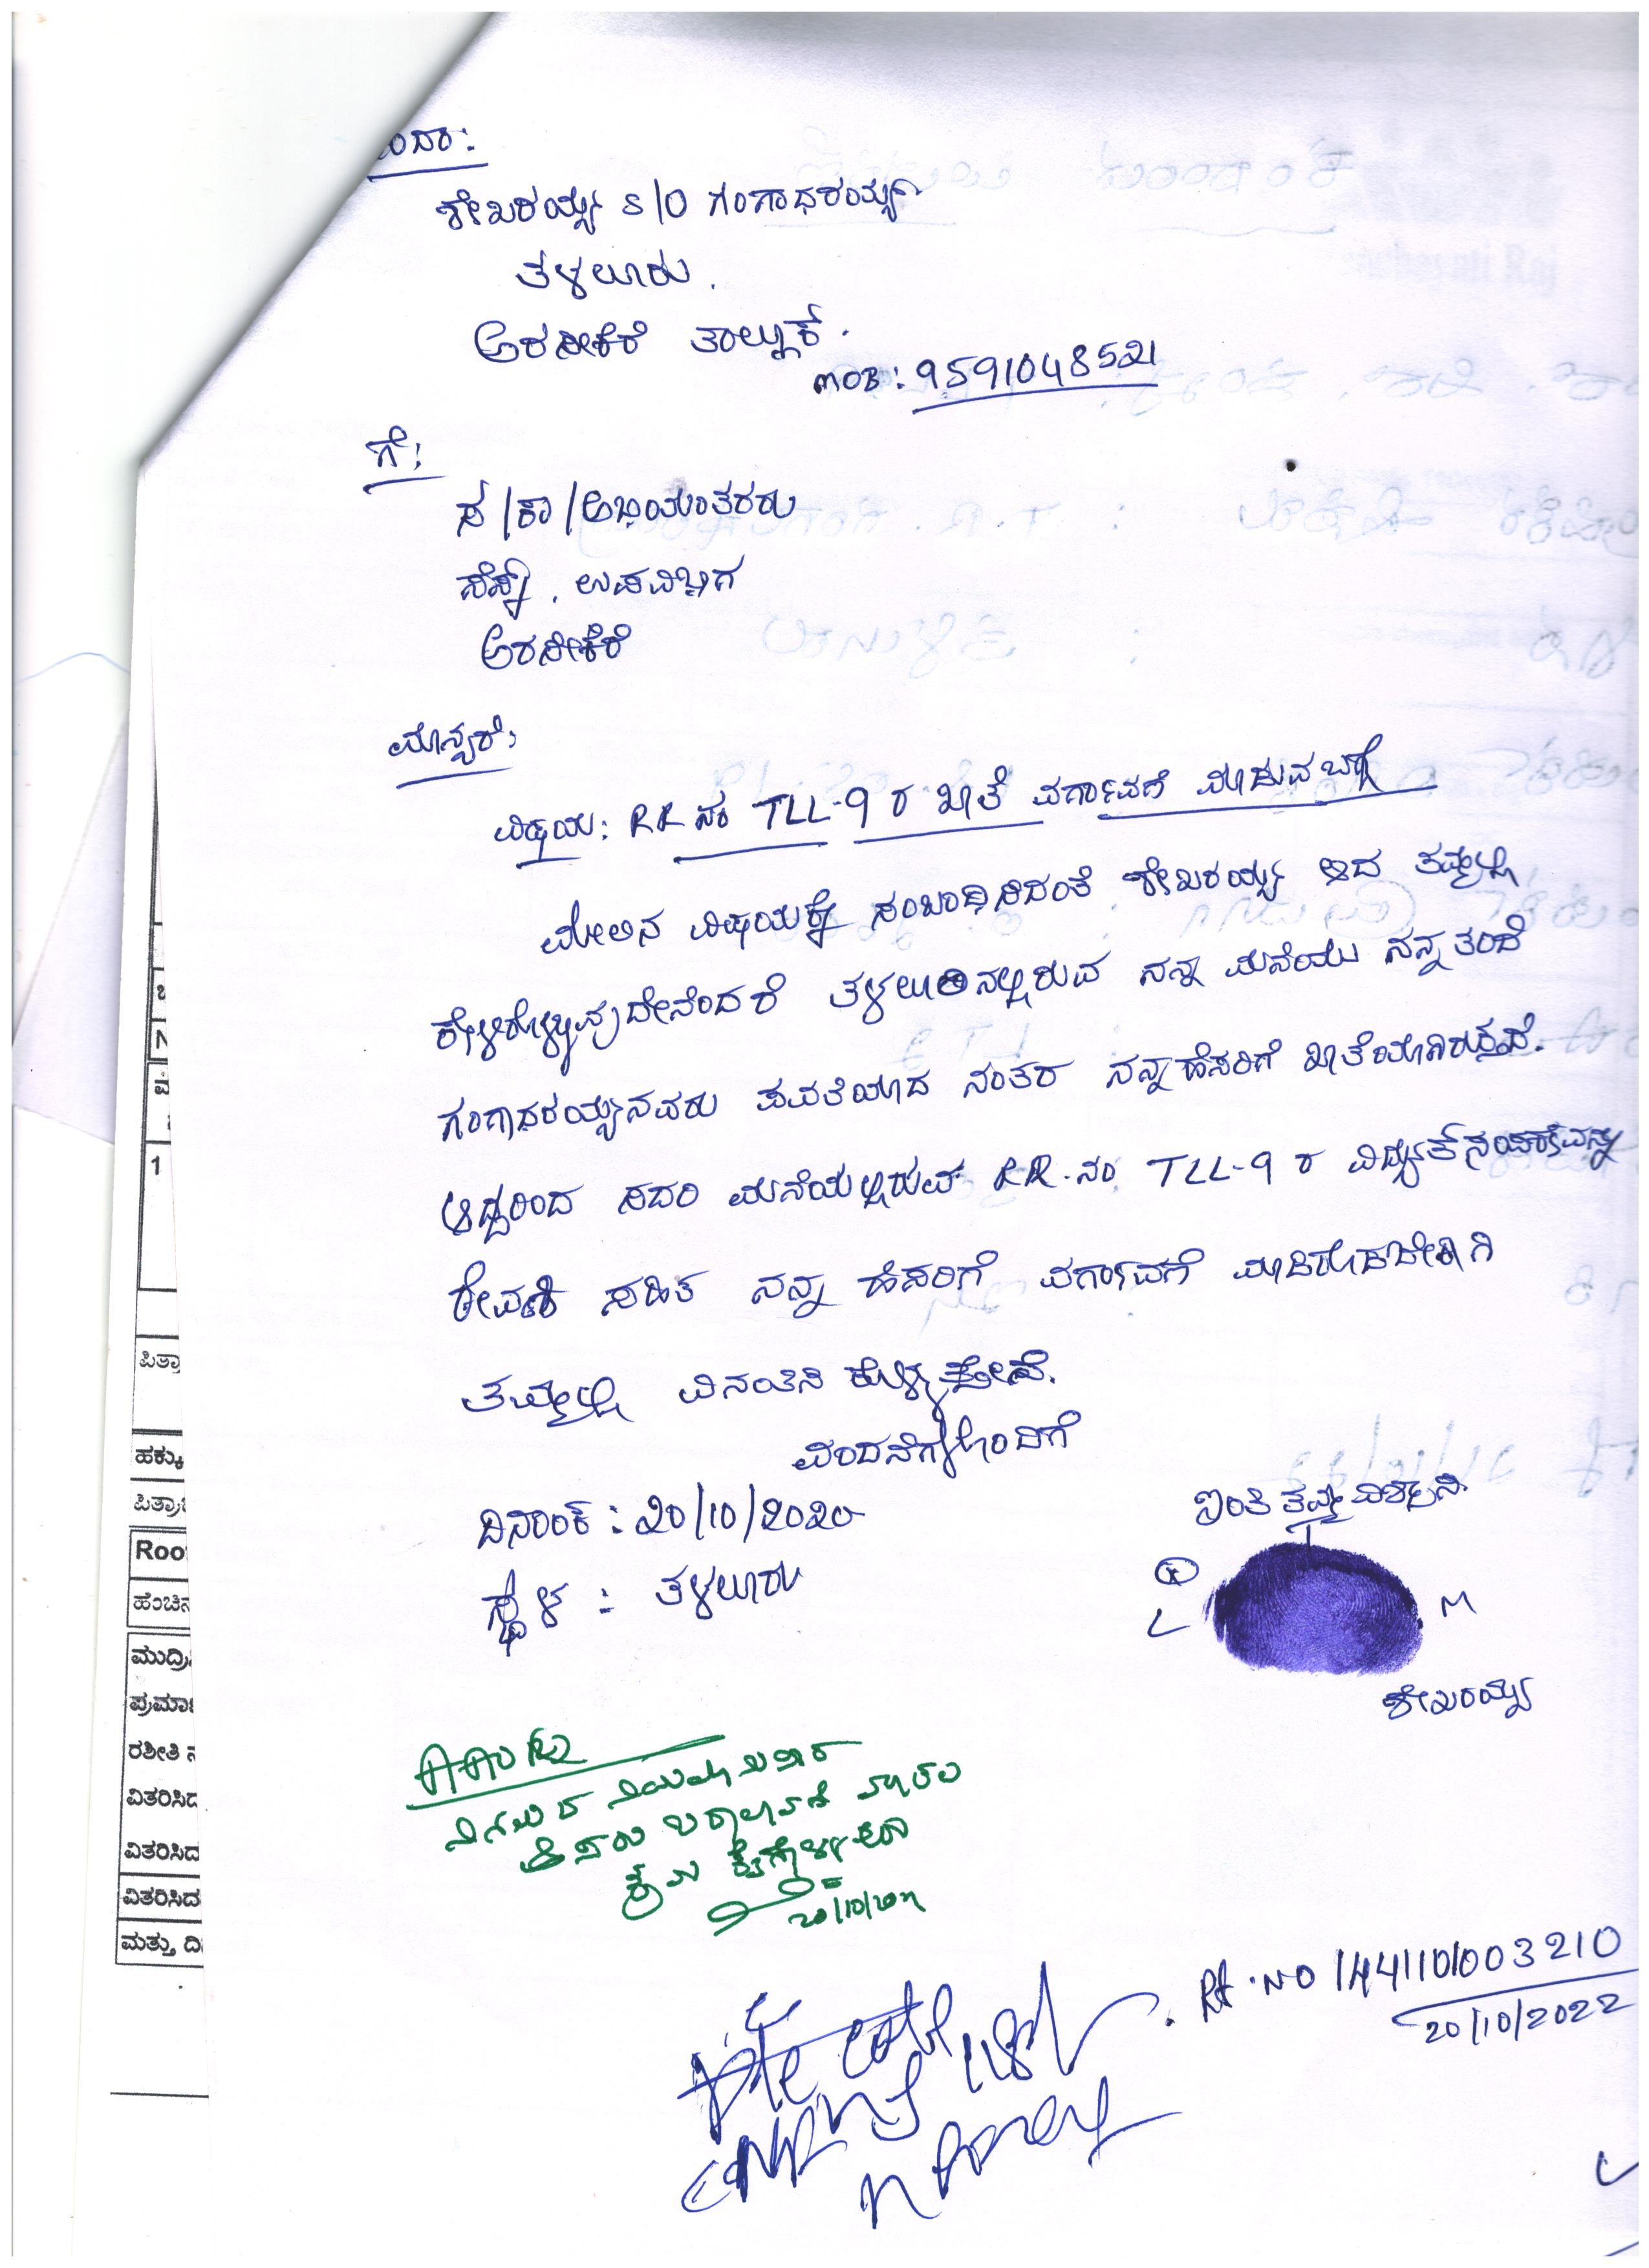 ಂದಾ:
ಶೇಖರಯ್ಯ S/O ಗಂಗಾಧರಯ್ಯ
ತಳಲೂರು.
ಅರಸೀಕೆರೆ ತಾಲ್ಲೂಕ್.
MOB: 9591048521
ಗೆ:
ಸ/ಕಾ/ಅಭಿಯಂತರರು
ಸೆಸ್ಕ್. ಉಪವಿಭಾಗ
ಅರಸೀಕೆರೆ
ಮಾನ್ಯರೆ,
ವಿಷಯ: RR ನಂ TLL-9 ರ ಖಾತೆ ವರ್ಗಾವಣೆ ಮಾಡುವ ಬಗ್ಗೆ
ಮೇಲಿನ ವಿಷಯಕ್ಕೆ ಸಂಬಂಧಿಸಿದಂತೆ ಶೇಖರಯ್ಯ ಆದ ತಮ್ಮಲ್ಲಿ
ಕೇಳಿಕೊಳ್ಳುವುದೇನೆಂದರೆ ತಳಲೂರಿನಲ್ಲಿರುವ ನನ್ನ ಮನೆಯು ನನ್ನ ತಂದೆ
ಗಂಗಾಧರಯ್ಯನವರು ಪವತೆಯಾದ ನಂತರ ನನ್ನ ಹೆಸರಿಗೆ ಖಾತೆಯಾಗಿರುತ್ತದೆ.
ಆದ್ದರಿಂದ ಸದರಿ ಮನೆಯಲ್ಲಿರುವ RR.ನಂ TLL-9 ರ ವಿದ್ಯುತ್ ಸಂಪರ್ಕವನ್ನು
ಠೇವಣಿ ಸಹಿತ ನನ್ನ ಹೆಸರಿಗೆ ವರ್ಗಾವಣೆ ಮಾಡಿಕೊಡಬೇಕಾಗಿ
ತಮ್ಮಲ್ಲಿ ವಿನಂತಿಸಿ ಕೊಳ್ಳುತ್ತೇನೆ.
ವಂದನೆಗಳೊಂದಿಗೆ
ದಿನಾಂಕ್ : 20/10/2022
ಇಂತಿ ತಮ್ಮ ವಿಶ್ವಾಸಿ
ಸ್ಥಳ : ತಳಲೂರು
L M
ಶೇಖರಯ್ಯ
ಕ್ರಮ ಕೈಗೊಳ್ಳಲು
Rt.NO 1441101003210
20/10/2022
1
ಪಿತ್ರಾ
ಹಕ್ಕು
ಪಿತ್ರಾ
Roo
ಹೆಂಚಿನ
ಮುದ್ರಿ
ಪ್ರಮಾ
ರಶೀತಿ ನ
ವಿತರಿಸಿದ
ವಿತರಿಸಿದ
ವಿತರಿಸಿದ
ಮತ್ತು ದಿ